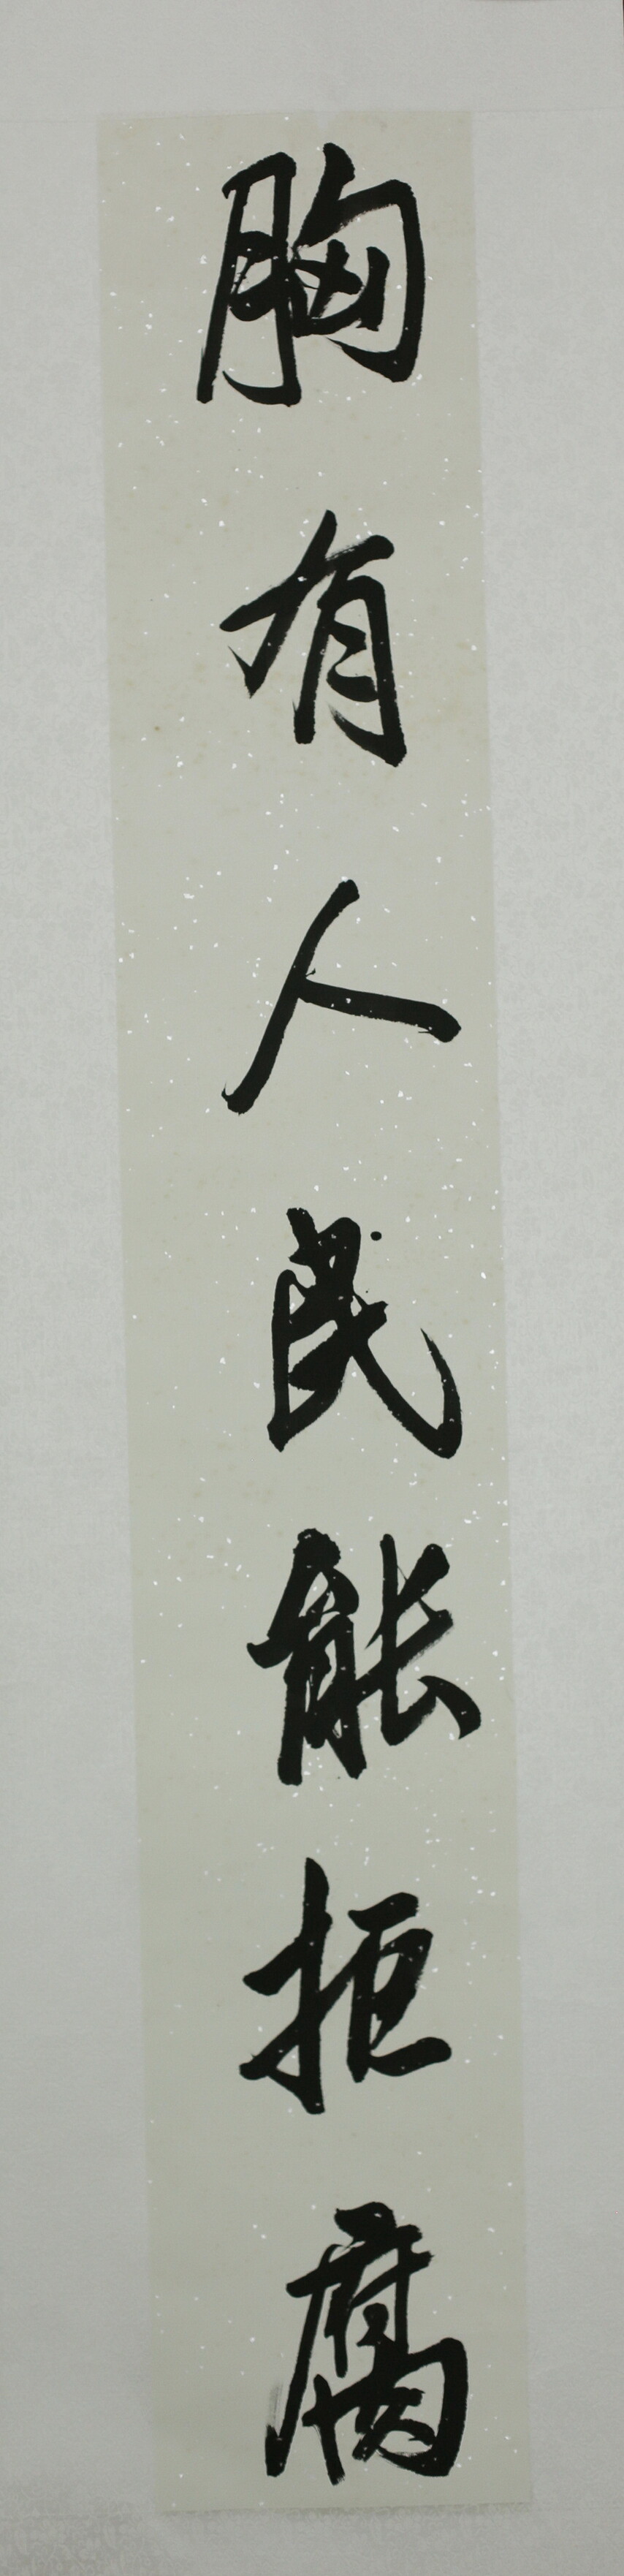 胸有人民能拒腐